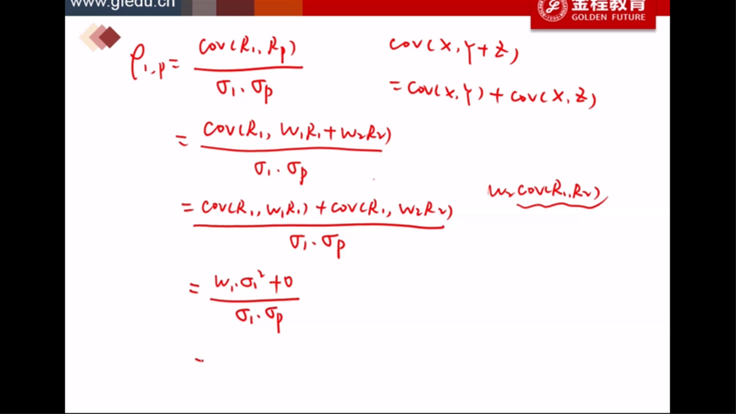 www.gfedu.cn
金程教育
GOLDEN FUTURE
ρ₁,p = cov(R₁, Rp) / σ₁·σp
cov(X, Y+Z)
= cov(X, Y) + cov(X, Z)
= cov(R₁, W₁R₁ + W₂R₂) / σ₁·σp
W₂ cov(R₁, R₂)
= cov(R₁, W₁R₁) + cov(R₁, W₂R₂) / σ₁·σp
= W₁·σ₁² + 0 / σ₁·σp
=